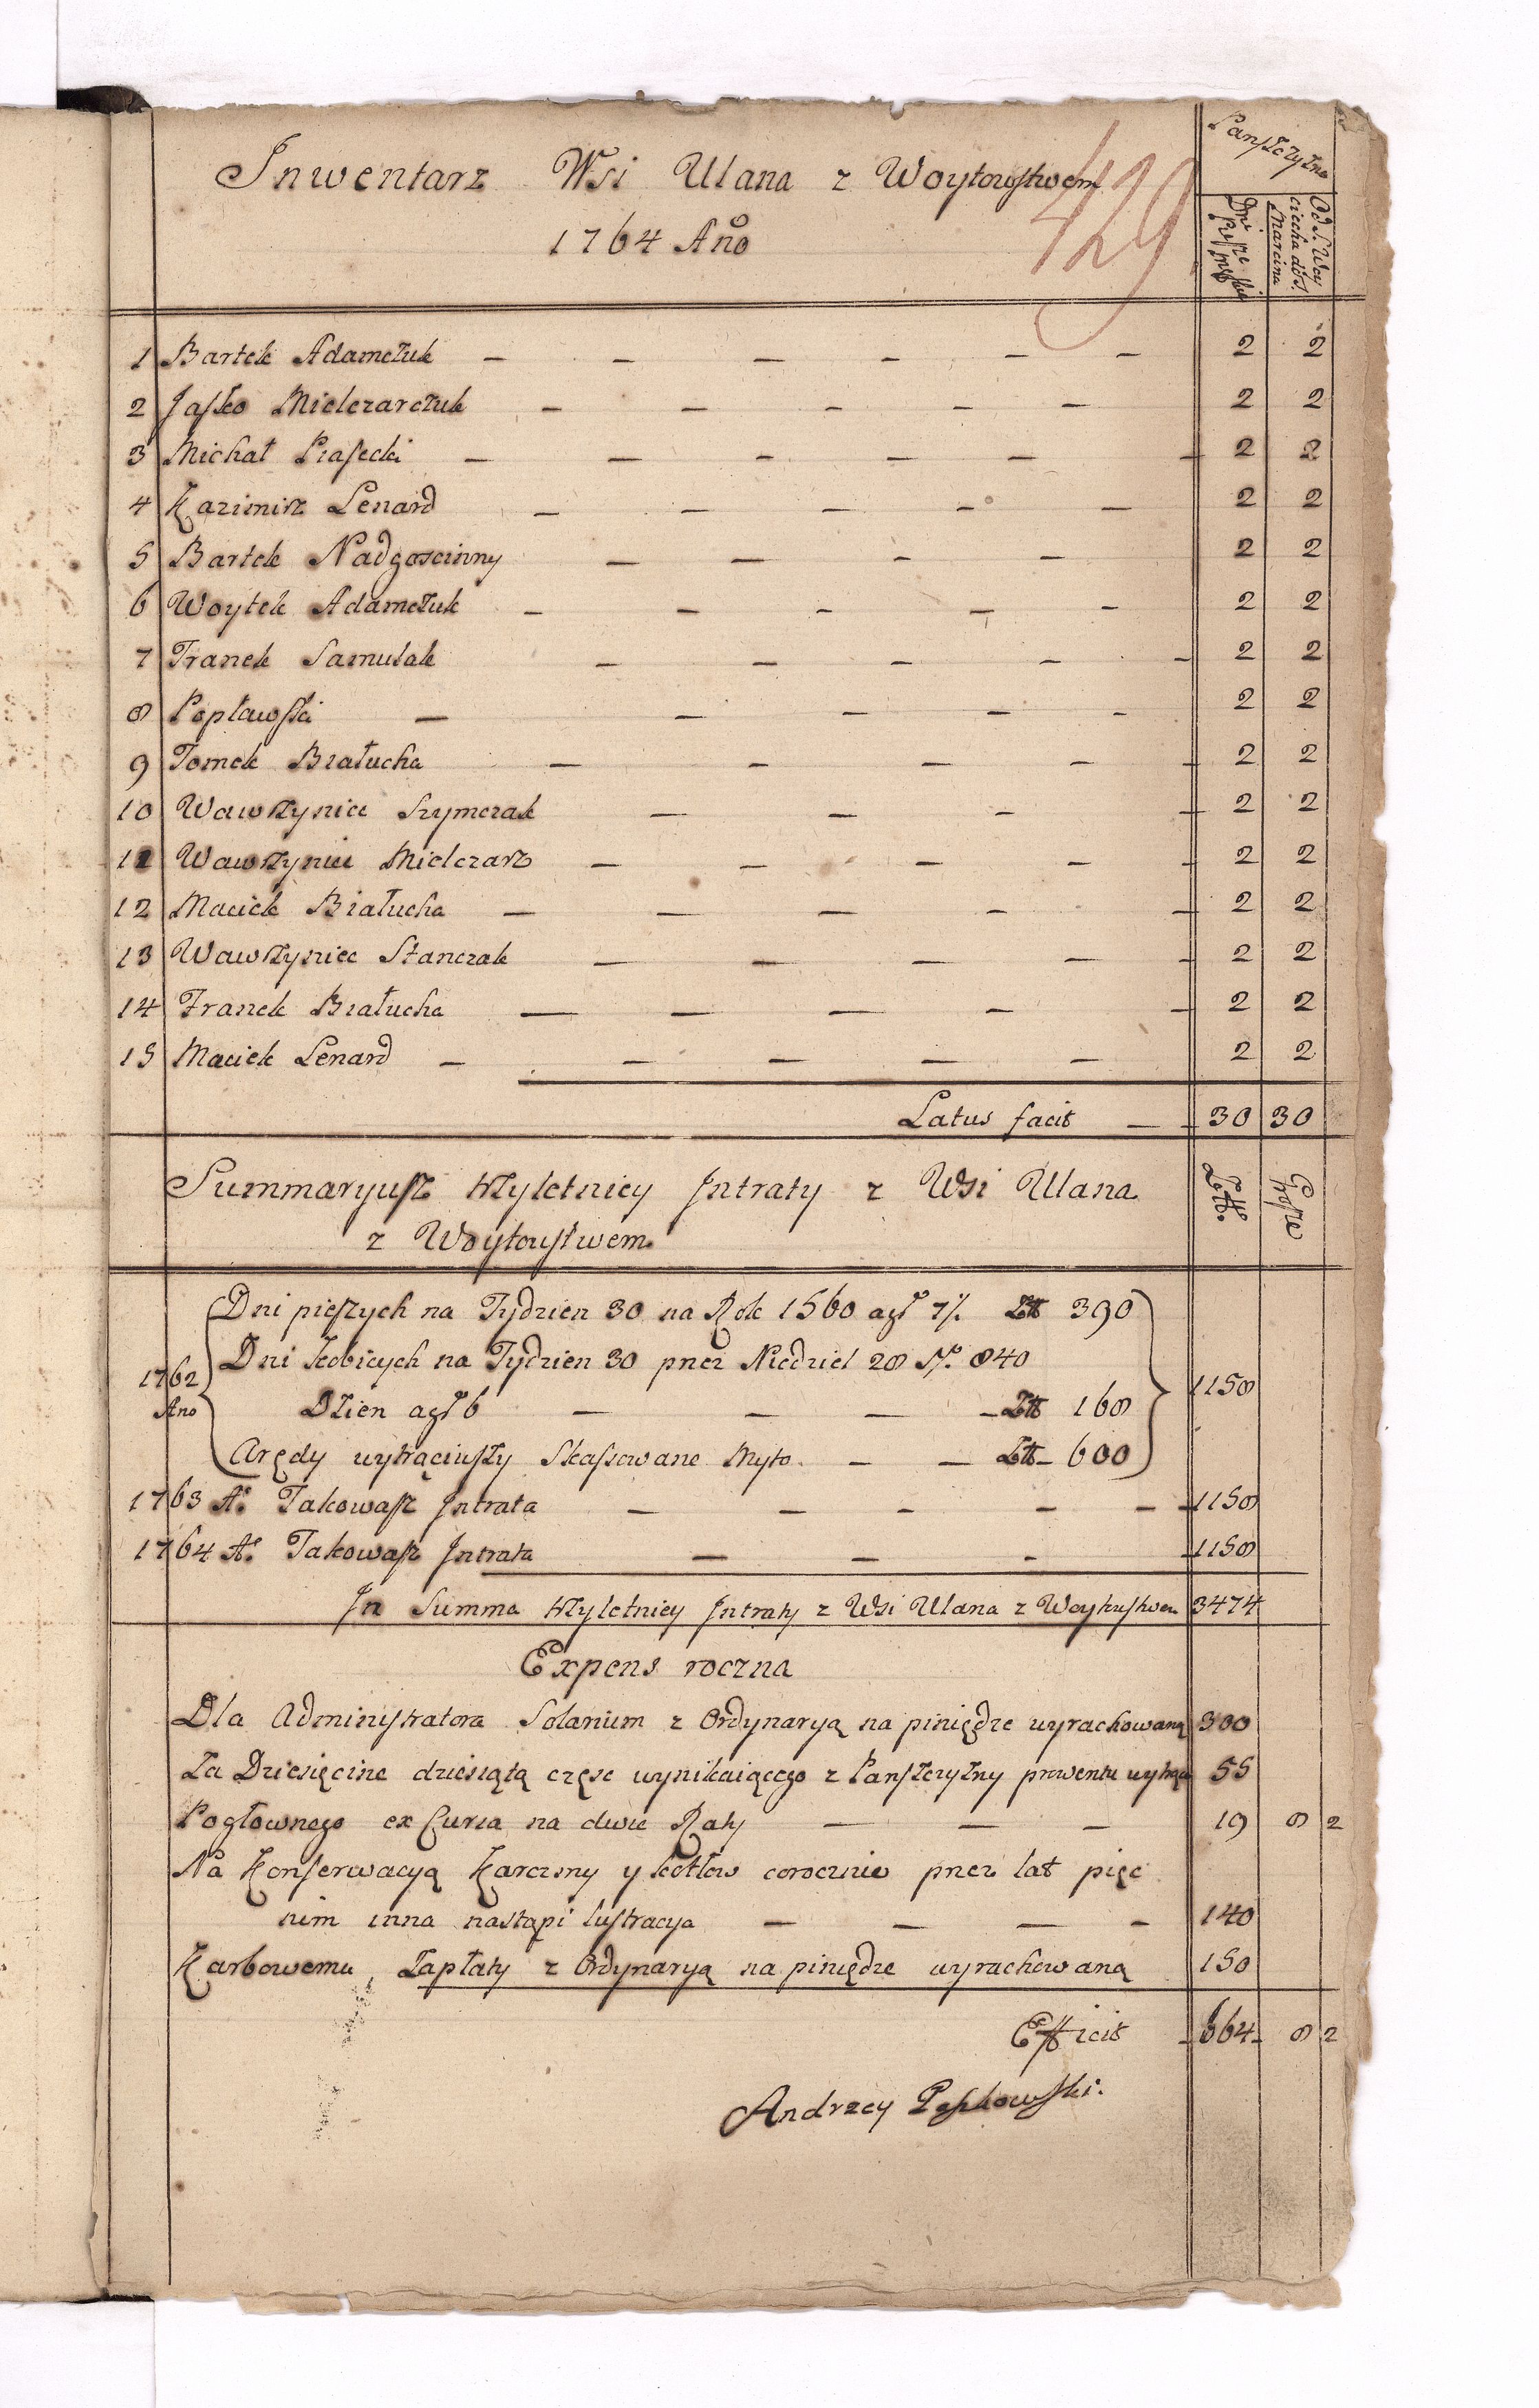 Panszczyzna
Inwentarz Wsi Ulana z Woytowstwem
429
1764 Año
Dni
Od S. Woy
ciecha do S.
Marcina
1 Bartek Adamczuk — — — — — — 2 2
2 Jasko Mielczarczuk — — — — — 2 2
3 Michał Piasecki — — — — — — 2 2
4 Kazimirz Lenard — — — — — 2 2
5 Bartek Nadgoscinny — — — — 2 2
6 Woytek Adamczuk — — — — — 2 2
7 Franek Samulak — — — — — 2 2
8 Popławski — — — — — 2 2
9 Tomek Białucha — — — — — 2 2
10 Wawrzyniec Szymczak — — — — 2 2
11 Wawrzyniec Mielczarz — — — — — 2 2
12 Maciek Białucha — — — — — 2 2
13 Wawrzyniec Stanczak — — — — — 2 2
14 Franek Białucha — — — — — 2 2
15 Maciek Lenard — — — — — 2 2
Latus facit — 30 30
Summaryusz trzyletniey Intraty z Wsi Ulana Złł. Grosze
z Woytowstwem
Dni pieszych na Tydzien 30 na Rok 1560 a gr 7½ Złł 390
1762 Dni kobicych na Tydzien 30 przez Niedziel 28 No. 840 1158
Ano Dzien a gr 6 — — — — Złł 168
Arędy wytrąciwszy Skasowane Myto — — Złł 600
1763 Ao. Takowasz Intrata — — — — — 1158
1764 Ao. Takowasz Intrata — — — 1158
In Summa trzyletniey Intraty z Wsi Ulana z Woytustwem 3474
Expens roczna
Dla Administratora Solarium z Ordynaryą na piniędze wyrachowaną 300
Za Dziesięcine dziesiątą częsc wynikaiącego z Panszczyzny prowentu 55
Pogłownego ex Curia na dwie Raty — — — 19 8 2
Na Konserwacyą Karczmy y kotłow corocznie przez lat pięc
nim inna nastąpi lustracya — — — — 140
Karbowemu Zapłaty z Ordynaryą na piniędze wyrachowaną 150
Efficit 664 8 2
Andrzey